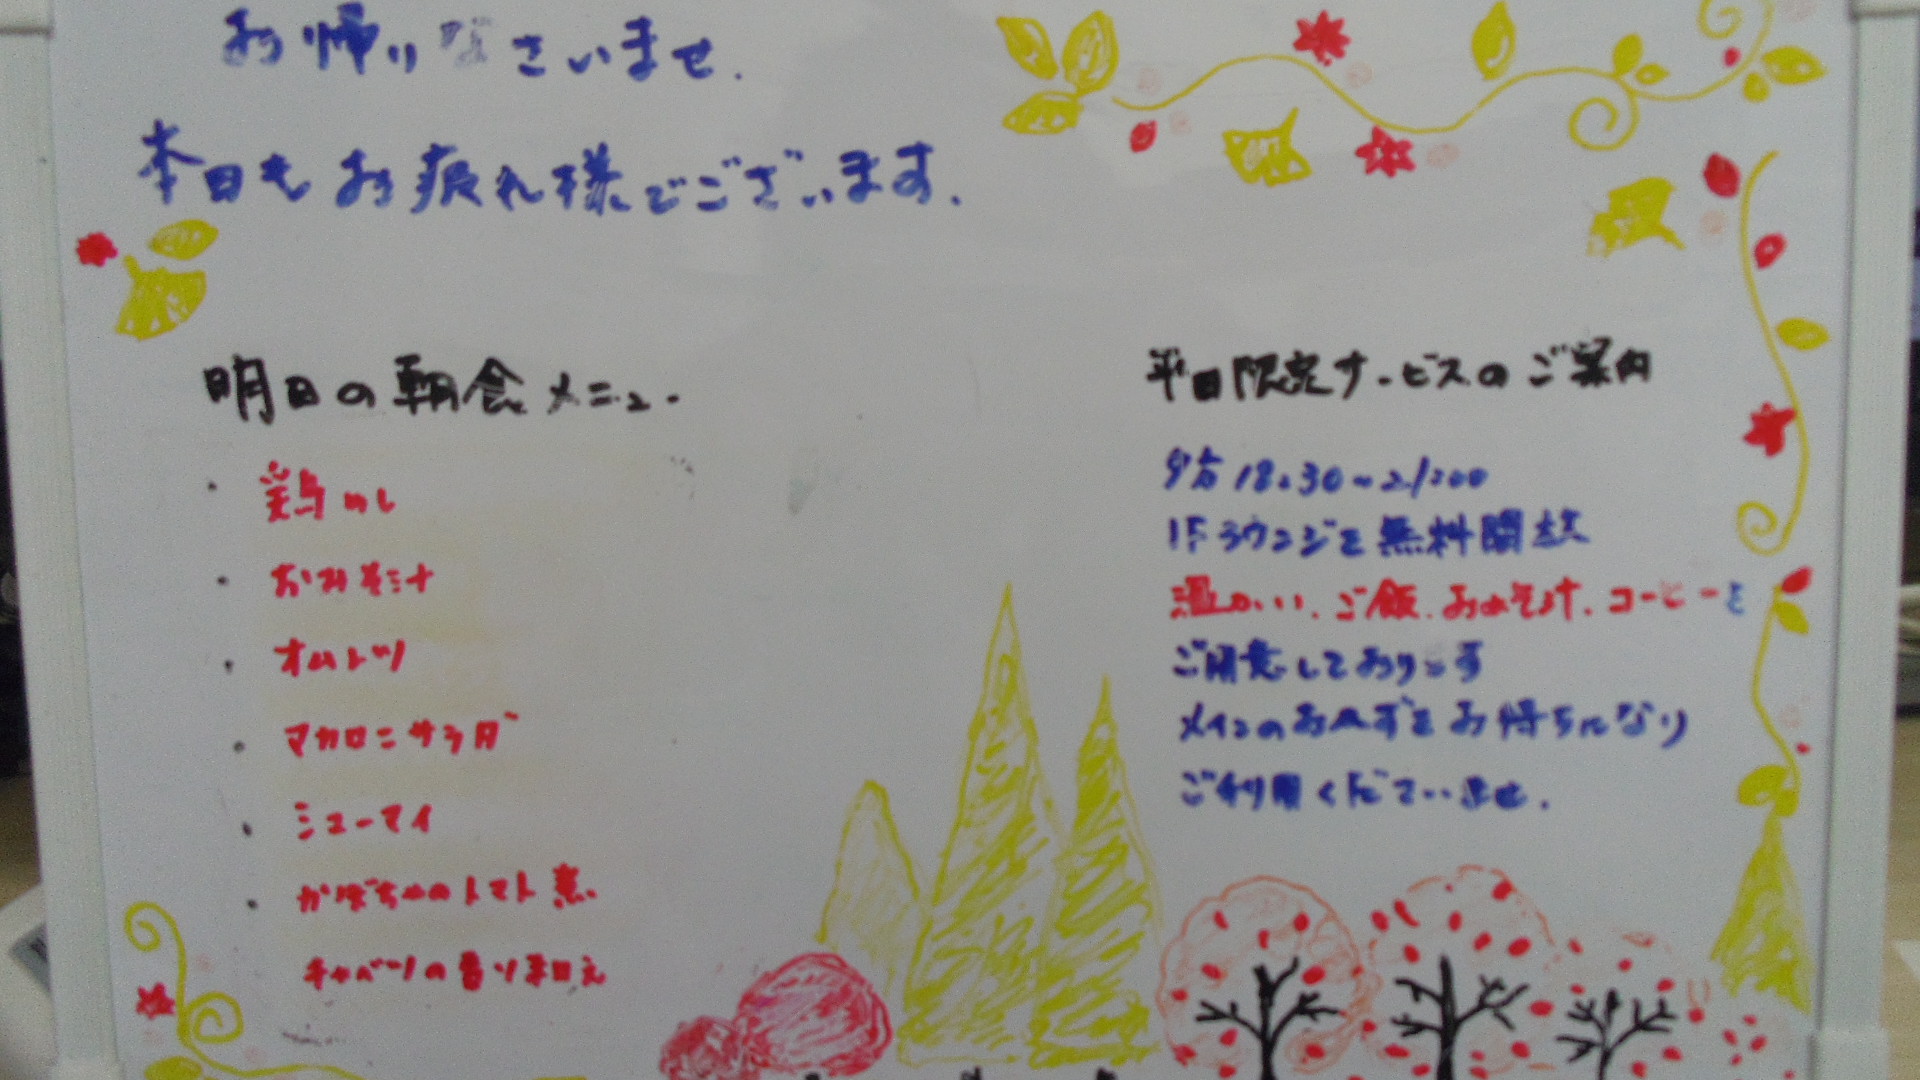 お帰りなさいませ.
本日もお疲れ様でございます.
明日の朝食メニュー
・鶏めし
・おみそ汁
・オムレツ
・マカロニサラダ
・シューマイ
・かぼちゃのトマト煮
キャベツの香り和え
平日限定サービスのご案内
夕方 18:30~21:00
1Fラウンジを無料開放
温かい、ご飯、おみそ汁、コーヒーを
ご用意しております
メインのおかずをお持ちになり
ご利用くださいませ.